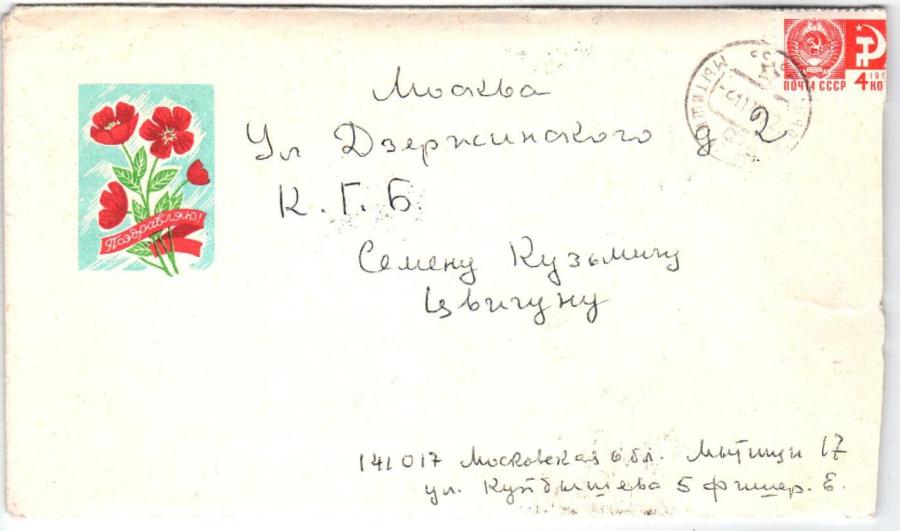 Москва
Ул Дзержинского д 2
К. Г. Б.
Семену Кузьмичу
Цвигуну
141017 Московская обл. Мытищи 17
ул. Куйбышева 5 Фишер. Е.
Поздравляю!
ПОЧТА СССР
4 КО
МЫТИЩ